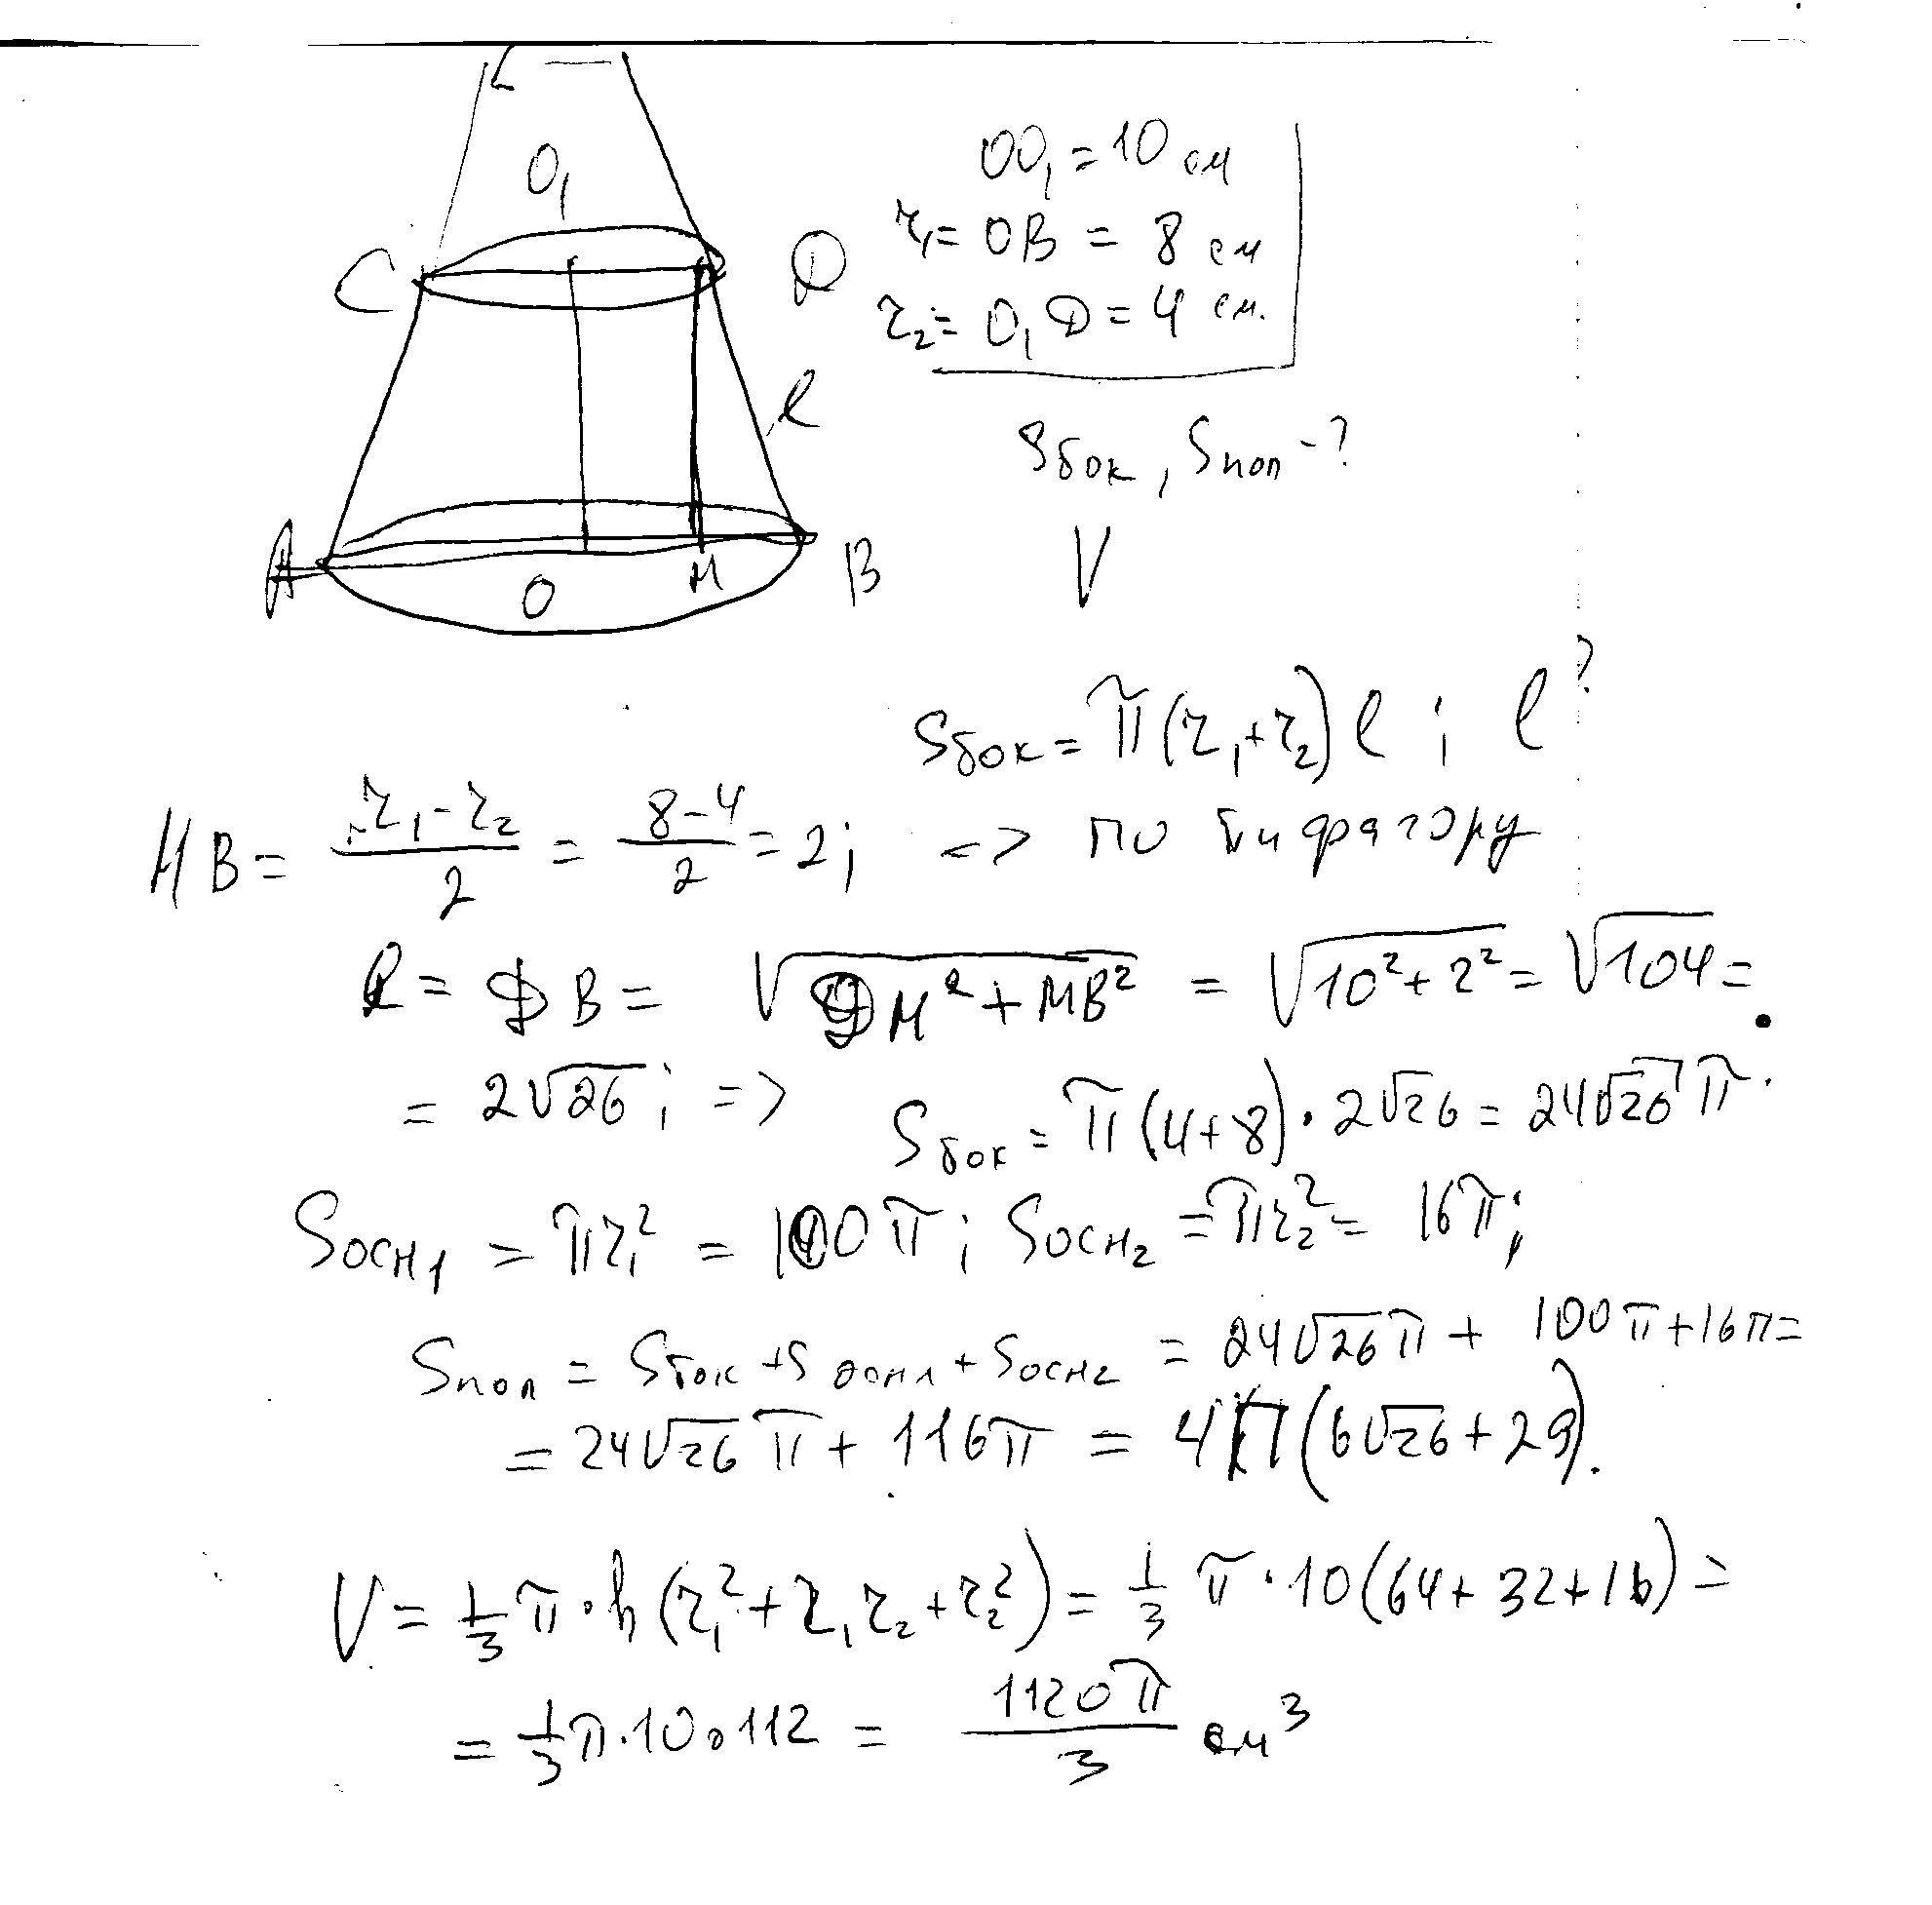 O₁
C
D
l
A
O
M
B
OO₁ = 10 см
r₁ = OB = 8 см
r₂ = O₁D = 4 см.
Sбок, Sпол - ?
V
Sбок = π(r₁+r₂)l ; l ?
MB = (r₁-r₂)/2 = (8-4)/2 = 2; => по Пифагору
l = DB = √(DM² + MB²) = √(10² + 2²) = √104 =
= 2√26 ; => Sбок = π(4+8)·2√26 = 24√26 π.
Sосн₁ = πr₁² = 100π ; Sосн₂ = πr₂² = 16π;
Sпол = Sбок + Sосн₁ + Sосн₂ = 24√26 π + 100π + 16π =
= 24√26 π + 116π = 4π(6√26 + 29).
V = 1/3 π·h(r₁² + r₁r₂ + r₂²) = 1/3 π·10(64 + 32 + 16) =
= 1/3 π·10·112 = 1120π/3 см³